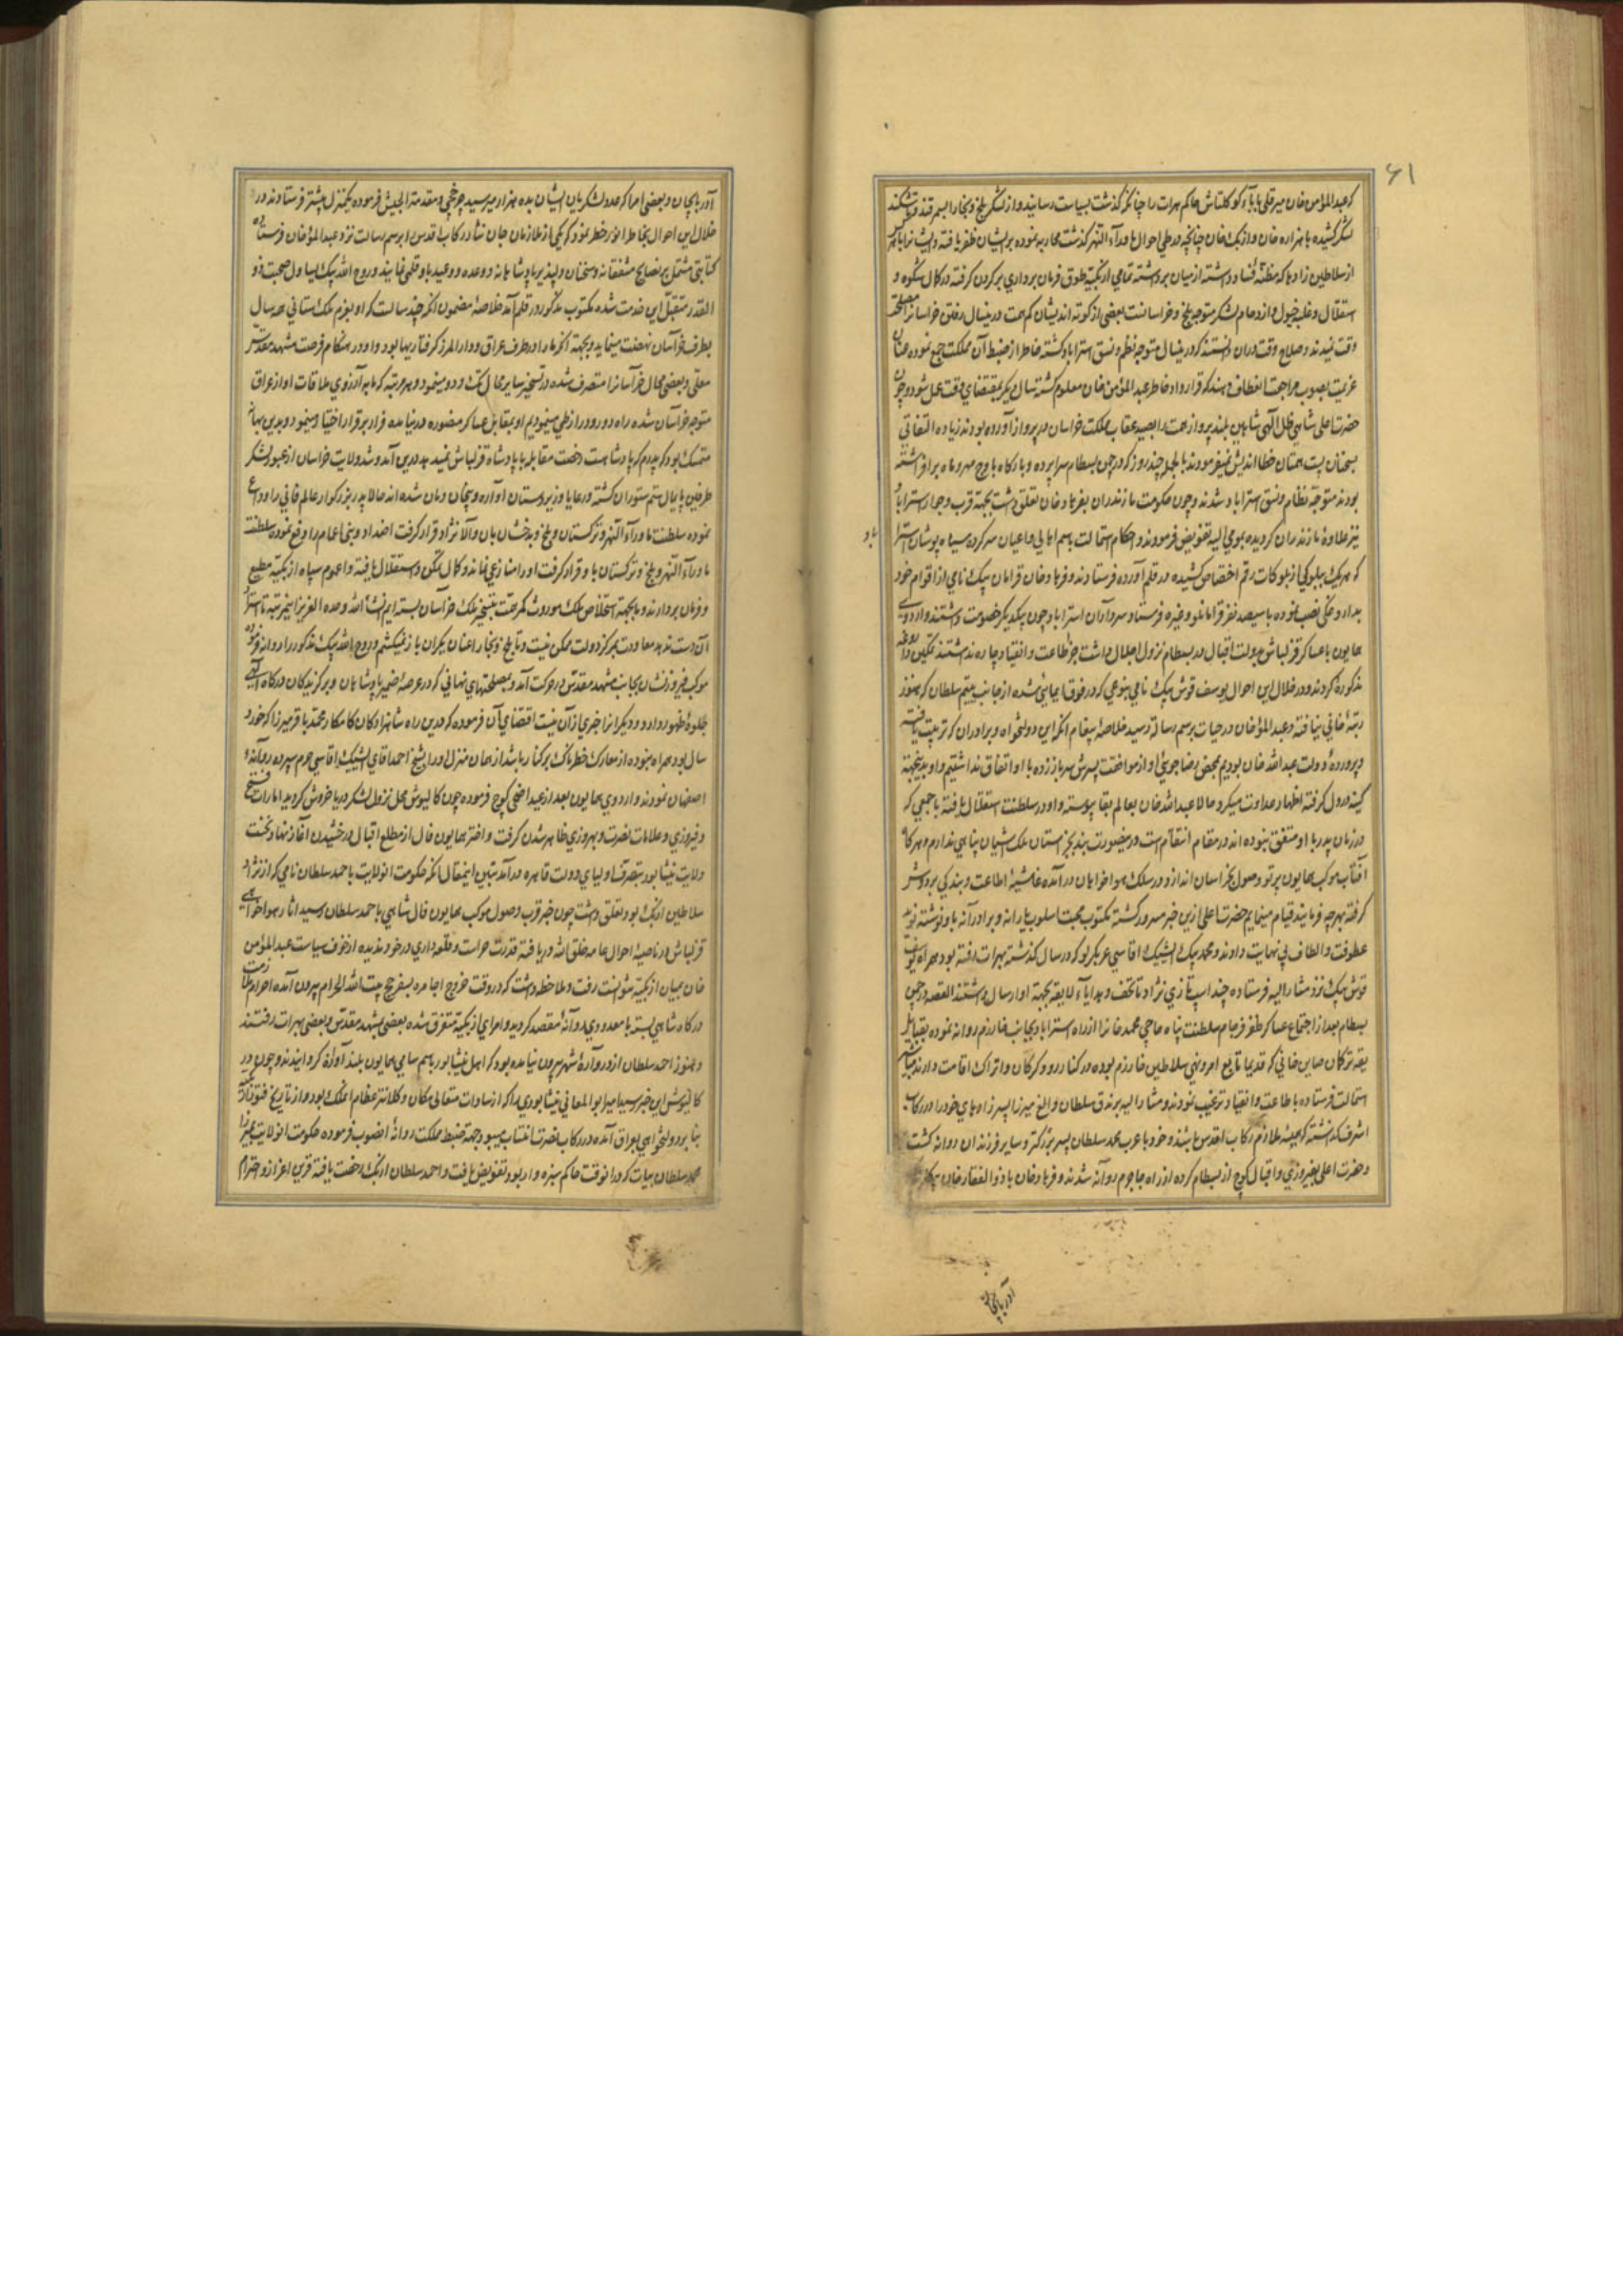 ۶۱
که عبدالمؤمن خان میر قلی بابا کوکلتاش حاکم هرات را چنانکه گذشت بسیاست رسانید و از لشکر بلخ و بخارا بسمرقند و تاشکند
لشکر کشیده با هزاره خان و ازبک خان چنانچه در طی احوال ماوراء النهر گذشت محاربه نموده بر ایشان ظفر یافته
از سلاطین زادها که مظنه فساد داشته از میان برداشته تمامی اوزبکیه طوق فرمان برداری بر گردن گرفته در کمال شکوه و
استقلال و غلبه خیول و ازدحام لشکر متوجه بلخ و خراسانست بعضی از کوته اندیشان کم همت درینسال رفتن خراسانرا مصلحت
وقت ندیدند و صلاح وقت در آن دانستند که درینسال متوجه نظم و نسق استراباد گشته خاطر از ضبط آن مملکت جمع نموده عنان
عزیمت بصوب مراجعت انعطاف دهند که قرارداد خاطر عبدالمؤمن خان معلوم گشته سال دیگر بمقتضای وقت عمل شود و چون
حضرت اعلی شاهی ظل الهی شاهین بلند پرواز همت را بصید عقاب مملکت خراسان در پرواز آورده بودند زیاده التفاتی
بسخنان پست همتان خطا اندیش نفرمودند بالجمله چند روز که در چمن بسطام سراپرده و بارگاه باوج مهر و ماه برافراشته
بودند متوجه نظام و نسق استراباد شدند و چون حکومت مازندران بفرهاد خان تعلق داشت بجهة قرب و جوار استراباد
نیز علاوهٔ مازندران گردیده بمومی الیه تفویض فرمودند و احکام استمالت باسم اهالی و اعیان سرکرده سیاه پوشان استرا
باد
که هر یک ببلوکی از بلوکات رقم اختصاص کشیده در قلم آورده فرستادند و فرهاد خان قرامان بیک نامی از اقوام خود
بداروغگی نصب نموده با سیصد نفر قرامانلو و غیره فرستاد و سرداران استراباد چون بیکدیگر خصومت داشتند و اردوی
همایون با عساکر قزلباش بدولت اقبال در بسطام نزول اجلال داشت جز اطاعت و انقیاد چاره نداشتند تمکین داروغه
مذکوره کردند و در خلال این احوال یوسف قوش بیک نامی بنوعی که در فوق ایمائی شده از جانب یتیم سلطان که هنوز
رتبهٔ خانی نیافته و عبدالمؤمنخان در حیات برسم رسالة رسید خلاصهٔ پیغام آنکه این دولتخواه و برادران که تربیت یافته
و پروردهٔ دولت عبدالله خان بودیم بمحض رضاجوئی او از موافقت پسرش سر باز زده با او اتفاق نداشتیم و او بدینجهة
کینه در دل گرفته اظهار عداوت میکرد حالا عبدالله خان بعالم بقا پیوسته و او در سلطنت استقلال یافته با جمعی که
در زمان پدر با او متفق نبوده‌اند در مقام انتقام است درینصورت بنده بجز آستان ملک آشیان پناهی ندارم و هرگاه
آفتاب موکب همایون پرتو وصول بخراسان اندازد در سلک هواخواهان درآمده غاشیهٔ اطاعت و بندگی بر دوش
گرفته بهر چه فرمایند قیام مینمایم حضرت اعلی ازین خبر مسرور گشته مکتوب محبت اسلوب یارانه و برادرانه باو نوشته نوید
عطوفت و الطاف بی نهایت دادند و محمد بیک ایشیک آقاسی عربکیرلو که در سال گذشته بهرات رفته بود همراه یوسف
قوش بیک نزد مشارالیه فرستاده چند اسب تازی نژاد با تحف و هدایاء لایقه بجهة او ارسال داشتند القصه در چمن
بسطام بعد از اجتماع عساکر ظفر فرجام سلطنت پناه حاجی محمد خانرا از راه استراباد بجانب خوارزم روانه نموده بقبایل
یقه ترکمان صاین خانی که قدیما تابع امر و نهی سلاطین خوارزم بوده در کنار رود گرگان و اترک اقامت دارند
استمالت فرستاده باطاعت و انقیاد ترغیب نمودند و مشارالیه برندق سلطان و الغ میرزا پسرزادهای خود را در رکاب
اشرف گذاشته که همیشه ملازم رکاب اقدس باشند و خود با عرب محمد سلطان پسر بزرگتر و سایر فرزندان روانه گشت
و حضرت اعلی بفیروزی و اقبال کوچ از بسطام کرده از راه جاجرم روانه شدند و فرهاد خان با ذوالفقار خان
آذربایجان
آذربایجان و بعضی امرا که عدد لشکریان ایشان بده هزار میرسید چرخچی و مقدمة الجیش فرموده یکمنزل پیشتر فرستادند و در
خلال این احوال بخاطر انور خطور نمود که یکی از ملازمان جان نثار رکاب اقدس را برسم رسالت نزد عبدالمؤمنخان فرستاده
کتابتی مشتمل بر نصایح مشفقانه و سخنان دلپذیر پادشاهانه و وعده و وعید باو قلمی نمایند و روح الله بیک یساول صحبت ذو
القدر متقبل این خدمت شده مکتوب مذکور در قلم آمد خلاصهٔ مضمون آنکه چند سالست که او بعزم ملک ستانی هر سال
بطرف خراسان نهضت مینماید و بجهة آنکه ما را در طرف عراق و دارالمرز گرفتاریها بود و او در هنگام فرصت مشهد مقدس
معلی و بعضی محال خراسانرا متصرف شده در تسخیر سایر محال تک و دو مینمود و هر مرتبه که ما به آرزوی ملاقات او از عراق
متوجه خراسان شده راه دور و دراز طی مینمودیم او بمقابل عساکر منصوره در نیامده فرار بر قرار اختیار مینمود و بدین بهانه
متمسک بود که پدرم که پادشاهست رخصت مقابله با پادشاه قزلباش نمیدهد درین آمد و شد ولایت خراسان از عبور لشکر
طرفین پایمال ستم ستوران گشته و رعایا و زیردستان آواره و بیخان و مان شده‌اند حالا پدر بزرگوار عالم فانی را وداع
نموده سلطنت ماوراء النهر و ترکستان و بلخ و بدخشان بان والا نژاد قرار گرفت اضداد و بنی اعمام را دفع نموده سلطنت
ماوراء النهر و بلخ و ترکستان باو قرار گرفت او را منازعی نمانده و کمال تمکن و استقلال یافته و عموم سپاه ازبکیه مطیع
و فرمان بردارند و ما بجهة استخلاص ملک موروث کمر همت بتسخیر ملک خراسان بسته‌ایم انشاء الله وحده العزیز اینمرتبه تا استرداد
آن دست ندهد معاودت بمرکز دولت ممکن نیست و تا بلخ و بخارا عنان یکران باز نمیکشیم و روح الله بیک مذکور را روانه فرموده
موکب فیروزنشان بجانب مشهد مقدس در حرکت آمد و بمصلحتهای نهانی که در عرصهٔ ضمیر پادشاهان و برگزیدگان درگاه الهی
جلوهٔ ظهور دارد و دیگرانرا خبری از آن نیست اقتضای آن فرموده که درین راه شاهزادهٔ کامکار محمد باقر میرزا که خورد
سال بود همراه نبوده از معارک خطرناک بر کنار باشد از همان منزل او را بشیخ احمد آقای ایشیک آقاسی حرم سپرده روانهٔ
اصفهان نمودند و اردوی همایون بعد از عید اضحی کوچ فرموده چون کالپوش محل نزول لشکر دریا خروش گردید امارات فتح
و فیروزی و علامات نصرت و بهروزی ظاهر شدن گرفت و اختر همایون فال از مطلع اقبال درخشیدن آغاز نهاد نخست
ولایت نیشابور بتصرف اولیای دولت قاهره درآمد تبیین اینمقال آنکه حکومت آنولایت باحمد سلطان نامی که از نژاد
سلاطین ازبک بود تعلق داشت چون خبر قرب وصول موکب همایون فال شاهی باحمد سلطان رسید آثار هواخواهی
قزلباش در ناصیهٔ احوال عامه خلق الله دریافته قدرت حراست و قلعه داری در خود ندیده از خوف سیاست عبدالمؤمن
خان بمیان ازبکیه نتوانست رفت و ملاحظه داشت که در وقت خروج اجامره بسفر حج بیت الله الحرام بیرون آمده احرام ملازمت
درگاه شاهی بسته با معدودی روانهٔ مقصد گردید و امرای ازبکیه متفرق شده بعضی بمشهد مقدس و بعضی بهرات رفتند
و هنوز احمد سلطان از دروازهٔ شهر بیرون نیامده بود که اهل نیشابور باسم سامی همایون بلند آوازه گردانیدند و چون در
کالپوش این خبر رسید میر ابوالمعالی نیشابوری را که از سادات متعالی مکان و کلانتر عظام آنملک بود و از تاریخ فتور
بنا بر دولتخواهی بعراق آمده در رکاب نصرت انتساب میبود بجهة ضبط مملکت روانهٔ انصوب فرموده حکومت آنولایت
محمد سلطان بیات که در آنوقت حاکم سبزه وار بود تفویض یافت و احمد سلطان ازبک رخصت یافته قرین اعزاز و احترام